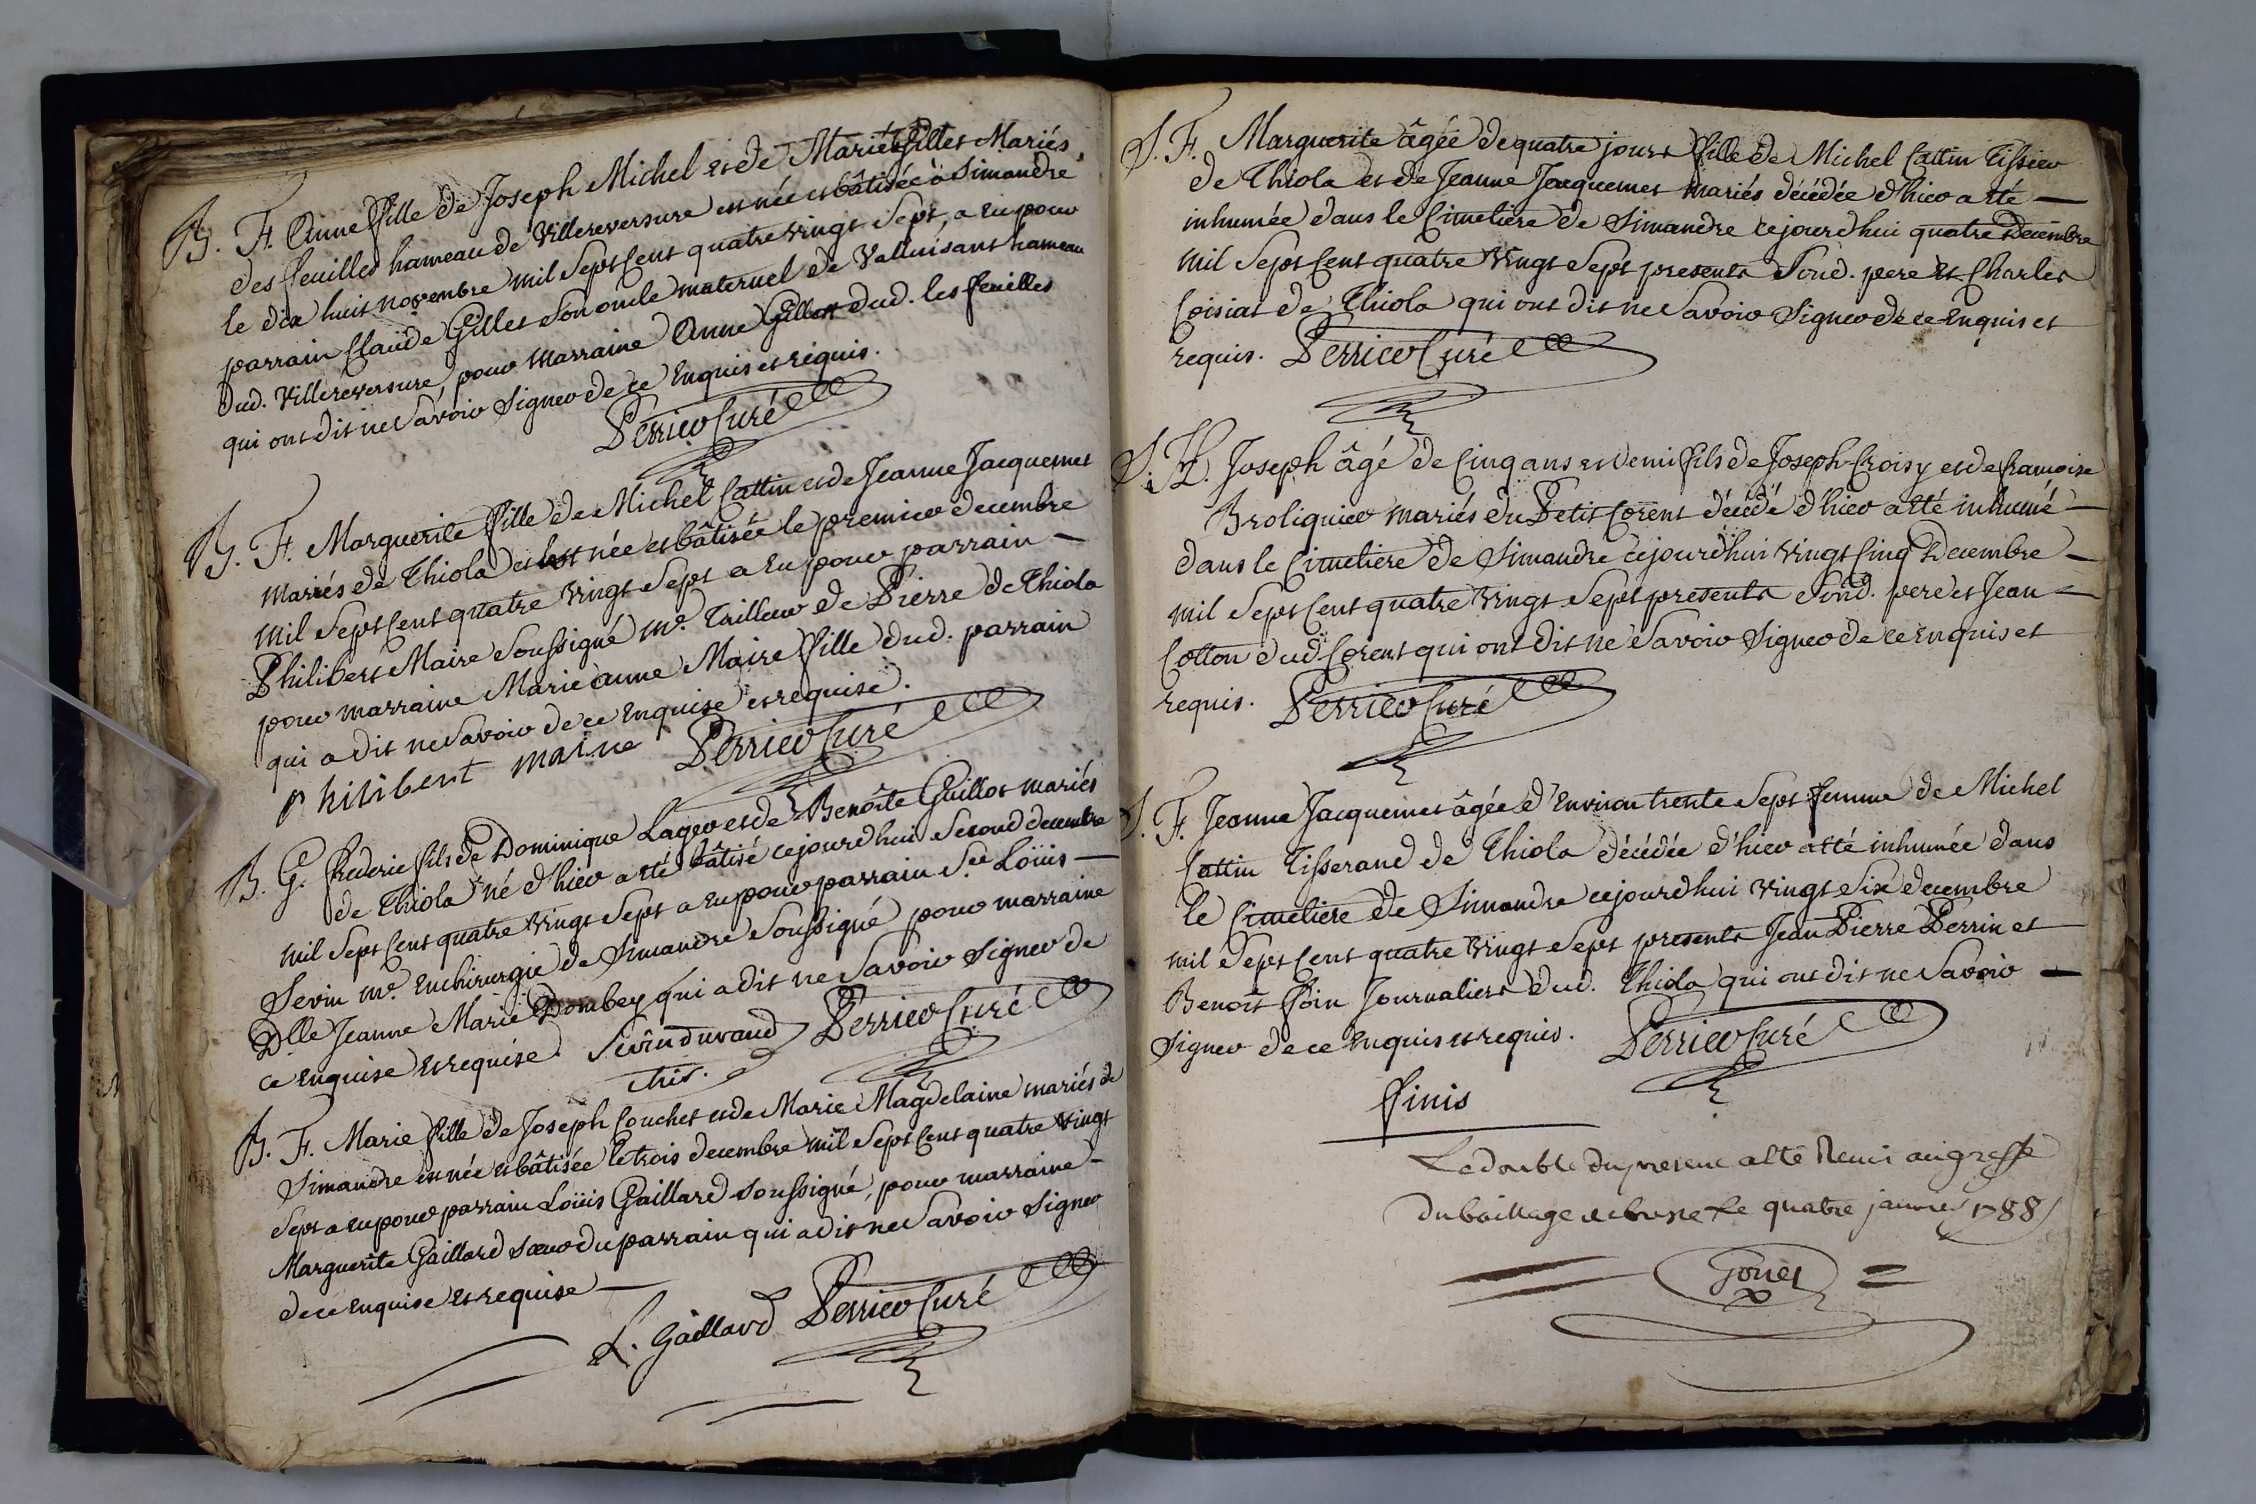 B. F. Anne fille de Joseph Michel et de Marie Gillet Mariés
des feuilles hameau de Villereversure est née et bâtisée à Simandre
le dix huit novembre mil sept cent quatre vingt sept, a eu pour
parrain Claude Gillet son oncle maternel de Valluisant hameau
dud. Villereversure, pour marraine Anne Gillet dud. les feuilles
qui ont dit ne savoir signer de ce enquis et réquis.
Perrier Curé
B. F. Marguerite fille de Michel Cattin et de Jeanne Jacquemet
mariés de Thiola est née et bâtisée le premier decembre
mil sept cent quatre vingt sept a eu pour parrain
Philibert Maire soussigné me. Tailleur de Pierre de Thiola
pour marraine Marie anne Maire fille dud. parrain
qui a dit ne savoir de ce enquise et requise.
Philibert maire Perrier Curé
B. G. frederic fils de Dominique Lager et de Benoîte Guillot mariés
de Thiola né d'hier a eté bâtisé cejourd'hui second decembre
mil sept cent quatre vingt sept a eu pour parrain Sr. Loüis
Sevin me. en chirurgie de Simandre soussigné pour marraine
Dlle Jeanne Marie Dombey qui a dit ne savoir signer de
ce enquise et requise. Sevin durand Perrier Curé
chir.
B. F. Marie fille de Joseph Couchet et de Marie Magdelaine mariés de
Simandre est née et bâtisée le trois decembre mil sept cent quatre vingt
sept a eu pour parrain Loüis Gaillard soussigné, pour marraine
Marguerite Gaillard sœur du parrain qui a dit ne savoir signer
de ce enquise et requise
L. Gaillard Perrier Curé
S. F. Marguerite âgée de quatre jours fille de Michel Cattin Tissier
de Thiola et de Jeanne Jacquemet mariés décédée d'hier a eté
inhumée dans le Cimetiere de Simandre cejourd'hui quatre Decembre
mil sept cent quatre vingt sept presents sond. pere et Charles
Coisiat de Thiola qui ont dit ne savoir signer de ce enquis et
requis. Perrier Curé
S. H. Joseph âgé de Cinq ans et demi fils de Joseph Croisy et de francoise
Broliquier mariés du Petit Corent décédé d'hier a eté inhumé
dans le Cimetiere de Simandre cejourd'hui vingt cinq Decembre
mil sept cent quatre vingt sept presents sond. pere et Jean
Cotton dud. Corent qui ont dit ne savoir signer de ce enquis et
requis. Perrier Curé
S. F. Jeanne Jacquemet âgée d'environ trente sept femme de Michel
Cattin Tisserand de Thiola décédée d'hier a eté inhumée dans
le Cimetiere de Simandre cejourd'hui vingt six decembre
mil sept cent quatre vingt sept presents Jean Pierre Perrin et
Benoît foin Journaliers dud. Thiola qui ont dit ne savoir
signer de ce enquis et requis. Perrier Curé
finis
Le double du present a eté remis au greffe
du bailliage de bresse le quatre janvier 1788